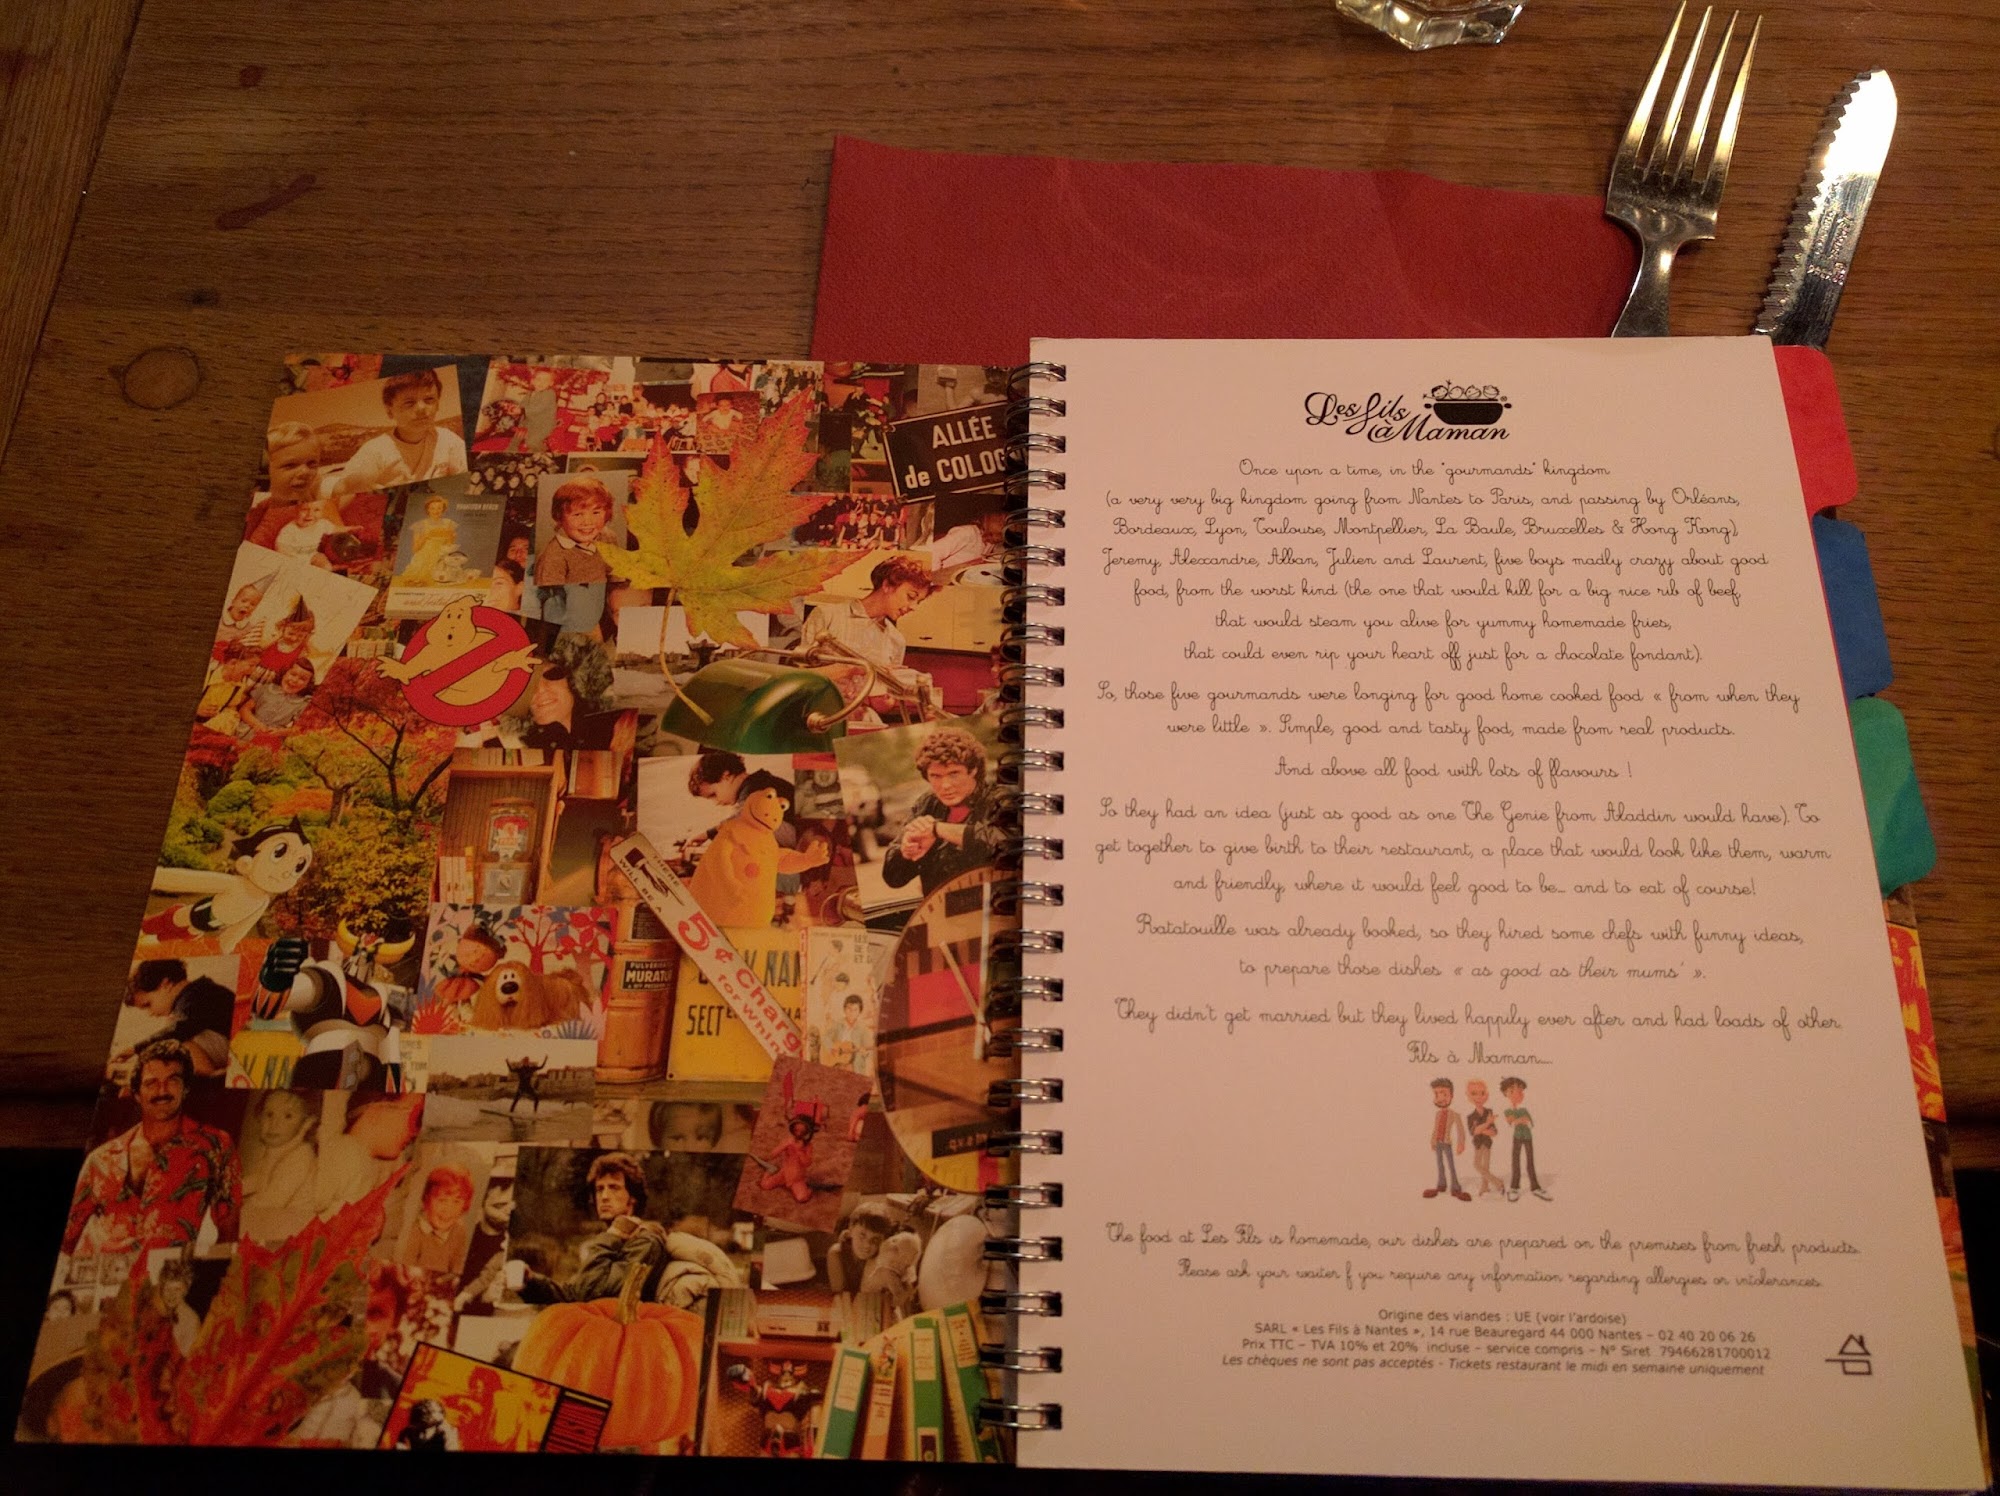 ALLÉE
de COLOG
THERE
WILL BE A
5¢ Charg
for Whin
PULVERIS
MURATO
SECT
Les fils
à Maman
Once upon a time, in the "gourmands" kingdom
(a very very big kingdom going from Nantes to Paris, and passing by Orléans,
Bordeaux, Lyon, Toulouse, Montpellier, La Baule, Bruxelles & Hong Kong)
Jeremy, Alexandre, Alban, Julien and Laurent, five boys madly crazy about good
food, from the worst kind (the one that would kill for a big nice rib of beef,
that would steam you alive for yummy homemade fries,
that could even rip your heart off just for a chocolate fondant).
So, those five gourmands were longing for good home cooked food « from when they
were little ». Simple, good and tasty food, made from real products.
And above all food with lots of flavours !
So they had an idea (just as good as one The Genie from Aladdin would have). To
get together to give birth to their restaurant, a place that would look like them, warm
and friendly, where it would feel good to be... and to eat of course!
Ratatouille was already booked, so they hired some chefs with funny ideas,
to prepare those dishes « as good as their mums' ».
They didn't get married but they lived happily ever after and had loads of other
Fils à Maman....
The food at Les Fils is homemade, our dishes are prepared on the premises from fresh products.
Please ask your waiter if you require any information regarding allergies or intolerances.
Origine des viandes : UE (voir l'ardoise)
SARL « Les Fils à Nantes », 14 rue Beauregard 44 000 Nantes - 02 40 20 06 26
Prix TTC - TVA 10% et 20% incluse - service compris - N° Siret 79466281700012
Les chèques ne sont pas acceptés - Tickets restaurant le midi en semaine uniquement